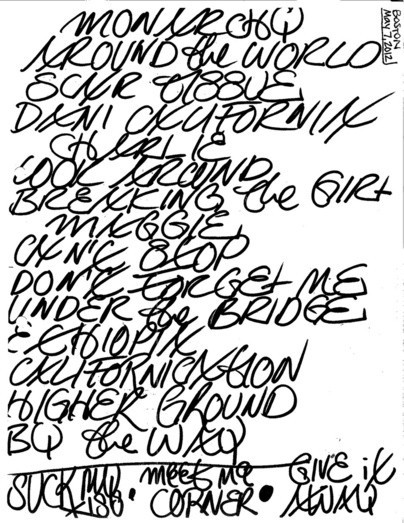 BOSTON
MAY 7, 2012
MONARCHY
AROUND the WORLD
SCAR TISSUE
DANI CALIFORNIA
CHARLIE
LOOK AROUND
BREAKING the GIRL
MAGGIE
CAN'T STOP
DON'T FORGET ME
UNDER the BRIDGE
ETHIOPIA
CALIFORNICATION
HIGHER GROUND
BY the WAY
SUCK MY KISS • MEET ME CORNER • GIVE iT AWAY